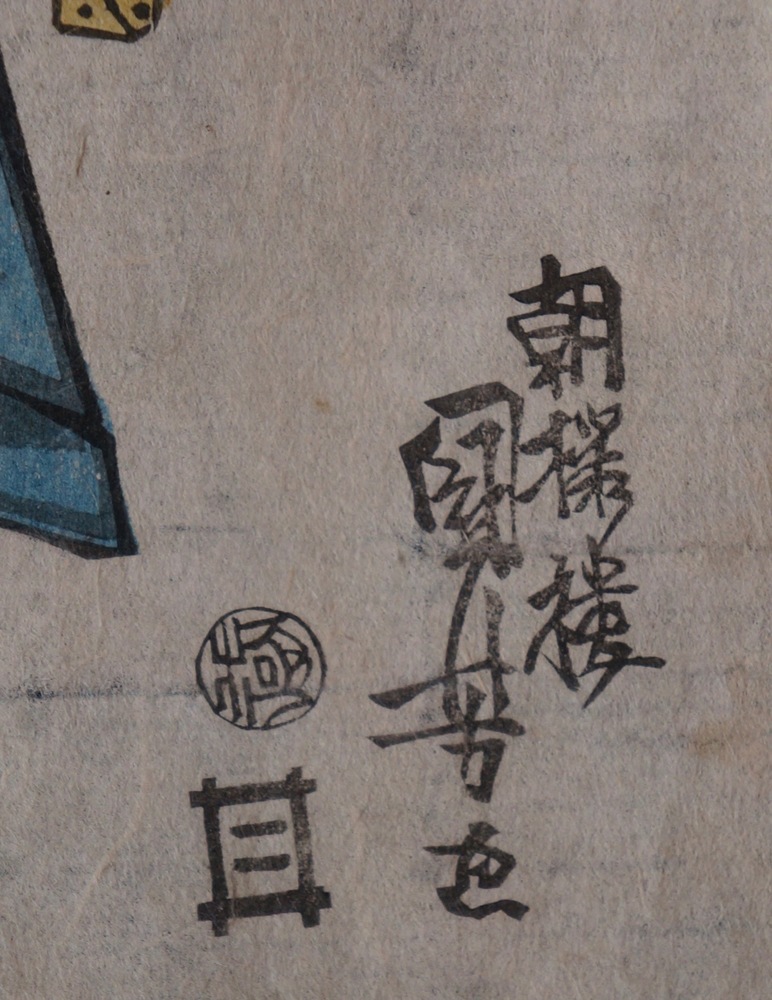 朝櫻樓
國芳画
極
三